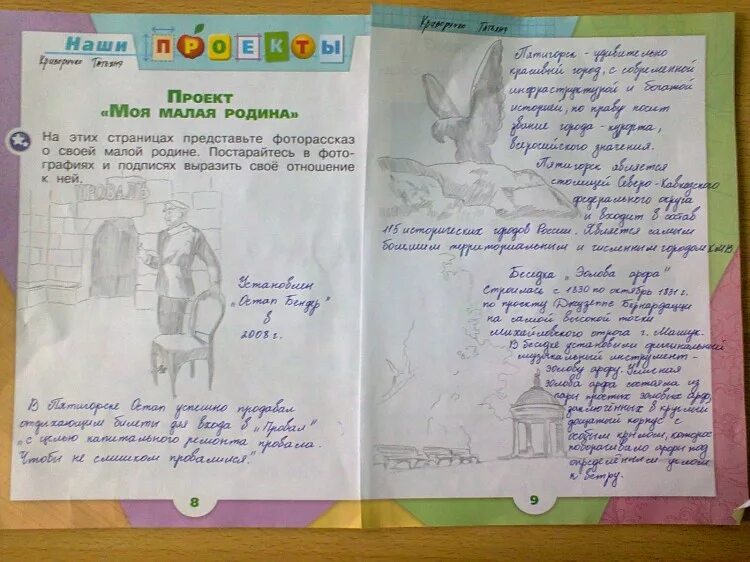 Наши ПРОЕКТЫ
Криворенко Татьяна
ПРОЕКТ
«МОЯ МАЛАЯ РОДИНА»
На этих страницах представьте фоторассказ
о своей малой родине. Постарайтесь в фото-
графиях и подписях выразить своё отношение
к ней.
ПРОВАЛЪ
Установлен
„Остап Бендер"
в
2008 г.
В Пятигорске Остап успешно продавал
отдыхающим билеты для входа в „Провал"
„с целью капитального ремонта провала.
Чтобы не слишком провалился."
8
Криворенко Татьяна
Пятигорск - удивительно
красивый город, с современной
инфраструктурой и богатой
историей, по праву носит
звание города - курорта,
всеросийского значения.
Пятигорск является
столицей Северо-Кавказского
федерального округа
и входит в состав
115 исторических городов России. Является самым
большим территориальным и численным городом КМВ
Беседка „Эолова арфа"
Строилась с 1830 по октябрь 1831 г.
по проекту Джузеппе Бернардацци
на самой высокой точки
Михайловского отрога г. Машук.
В беседке установили оригинальный
музыкальный инструмент-
эолову арфу.
эолова арфа состояла из
пары простых эоловых арф,
заключённых в круглый
дощатый корпус с
особым крылом, которое
поворачивало арфы под
определённым углом
к ветру.
9